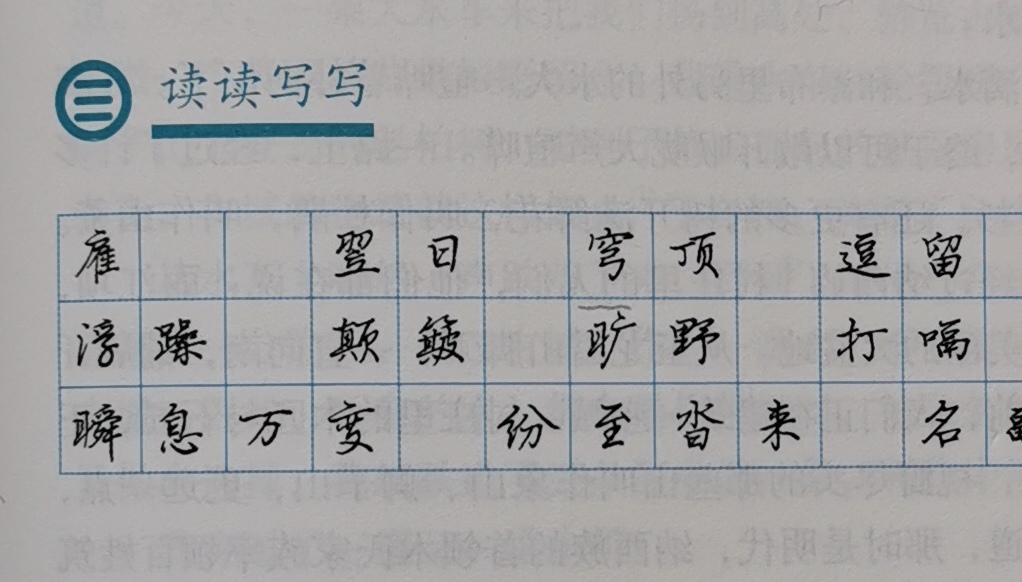 读读写写
雇 翌日 穹顶 逗留
浮躁 颠簸 旷野 打嗝
瞬息万变 纷至沓来 名副